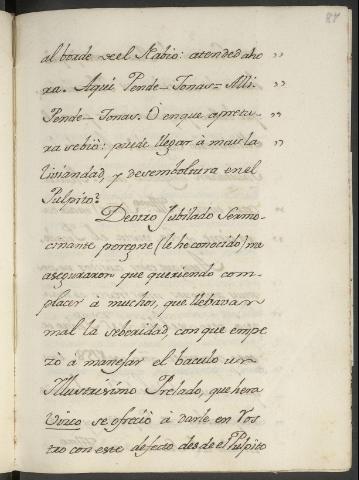 87
al borde de el Labio: atended aho "
ra. Aqui Pende=Jonas= Alli "
Pende=Jonas. O en que apretu- "
ra se bió: puede llegar á mas la "
liviandad, y desemboltura en el
Pulpito?
De otro Jubilado Sermo-
cinante porq̃ne (le he conocido) me
aseguraron que queriendo com-
placer á muchos, que llebavan
mal la seberidad, con que empe
zò a manejar el baculo un
Illustrisimo Prelado, que hera
Vizco se ofreció á darle en ros
tro con este defecto desde el Pulpito